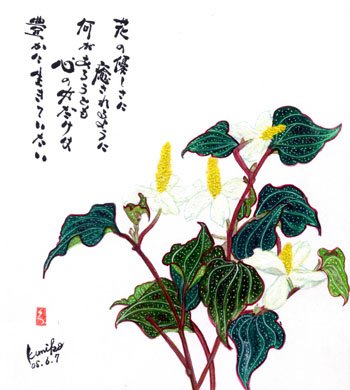 花の優しさに
癒されるように
何があろうとも
心の女だけは
豊かに生きていたい
Kuniko
05.6.7